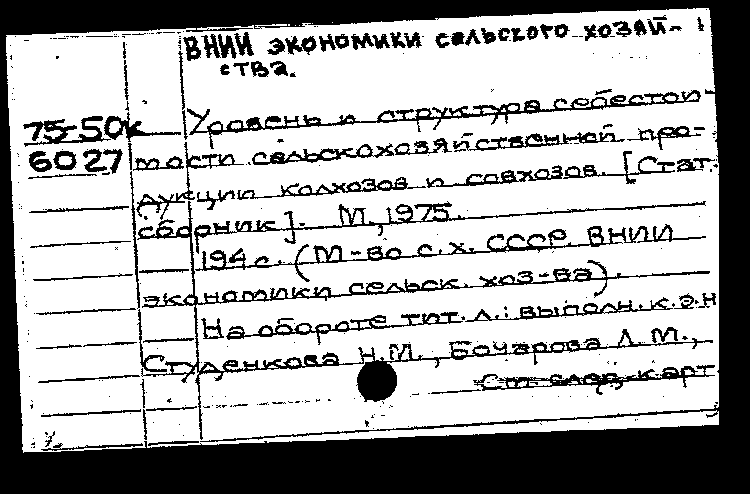 ВНИИ экономики сельского хозяй-
ства.
75-50к Уровень и структура себестои-
6027 мости сельскохозяйственной про-
дукции колхозов и совхозов. [Стат.
сборник]. М., 1975.
194 с. (М-во с.х. СССР. ВНИИ
экономики сельск. хоз-ва).
На обороте тит. л.: выполн. к.э.н
Студенкова Н.М., Бочарова Л.М.,
См. след. карт